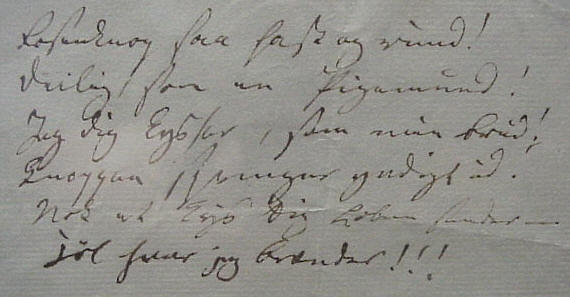 Rosenknop saa fast og rund!
Deilig, som en Pigemund!
Jeg dig Kysser, som min Brud!
Knoppen springer yndigt ud!
Nok et Kys dig Læben sender —
Føl hvor jeg brænder!!!